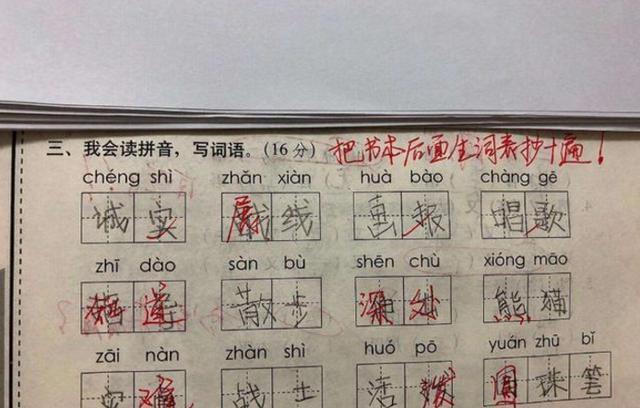 三、我会读拼音，写词语。(16分) 把书本后面生词表抄十遍！
chéng shì zhǎn xiàn huà bào chàng gē
诚实 线 画报 唱歌
zhī dào sàn bù shēn chù xióng māo
道 散步 深处 熊猫
zāi nàn zhàn shì huó pō yuán zhū bǐ
灾难 战士 活泼 圆珠笔